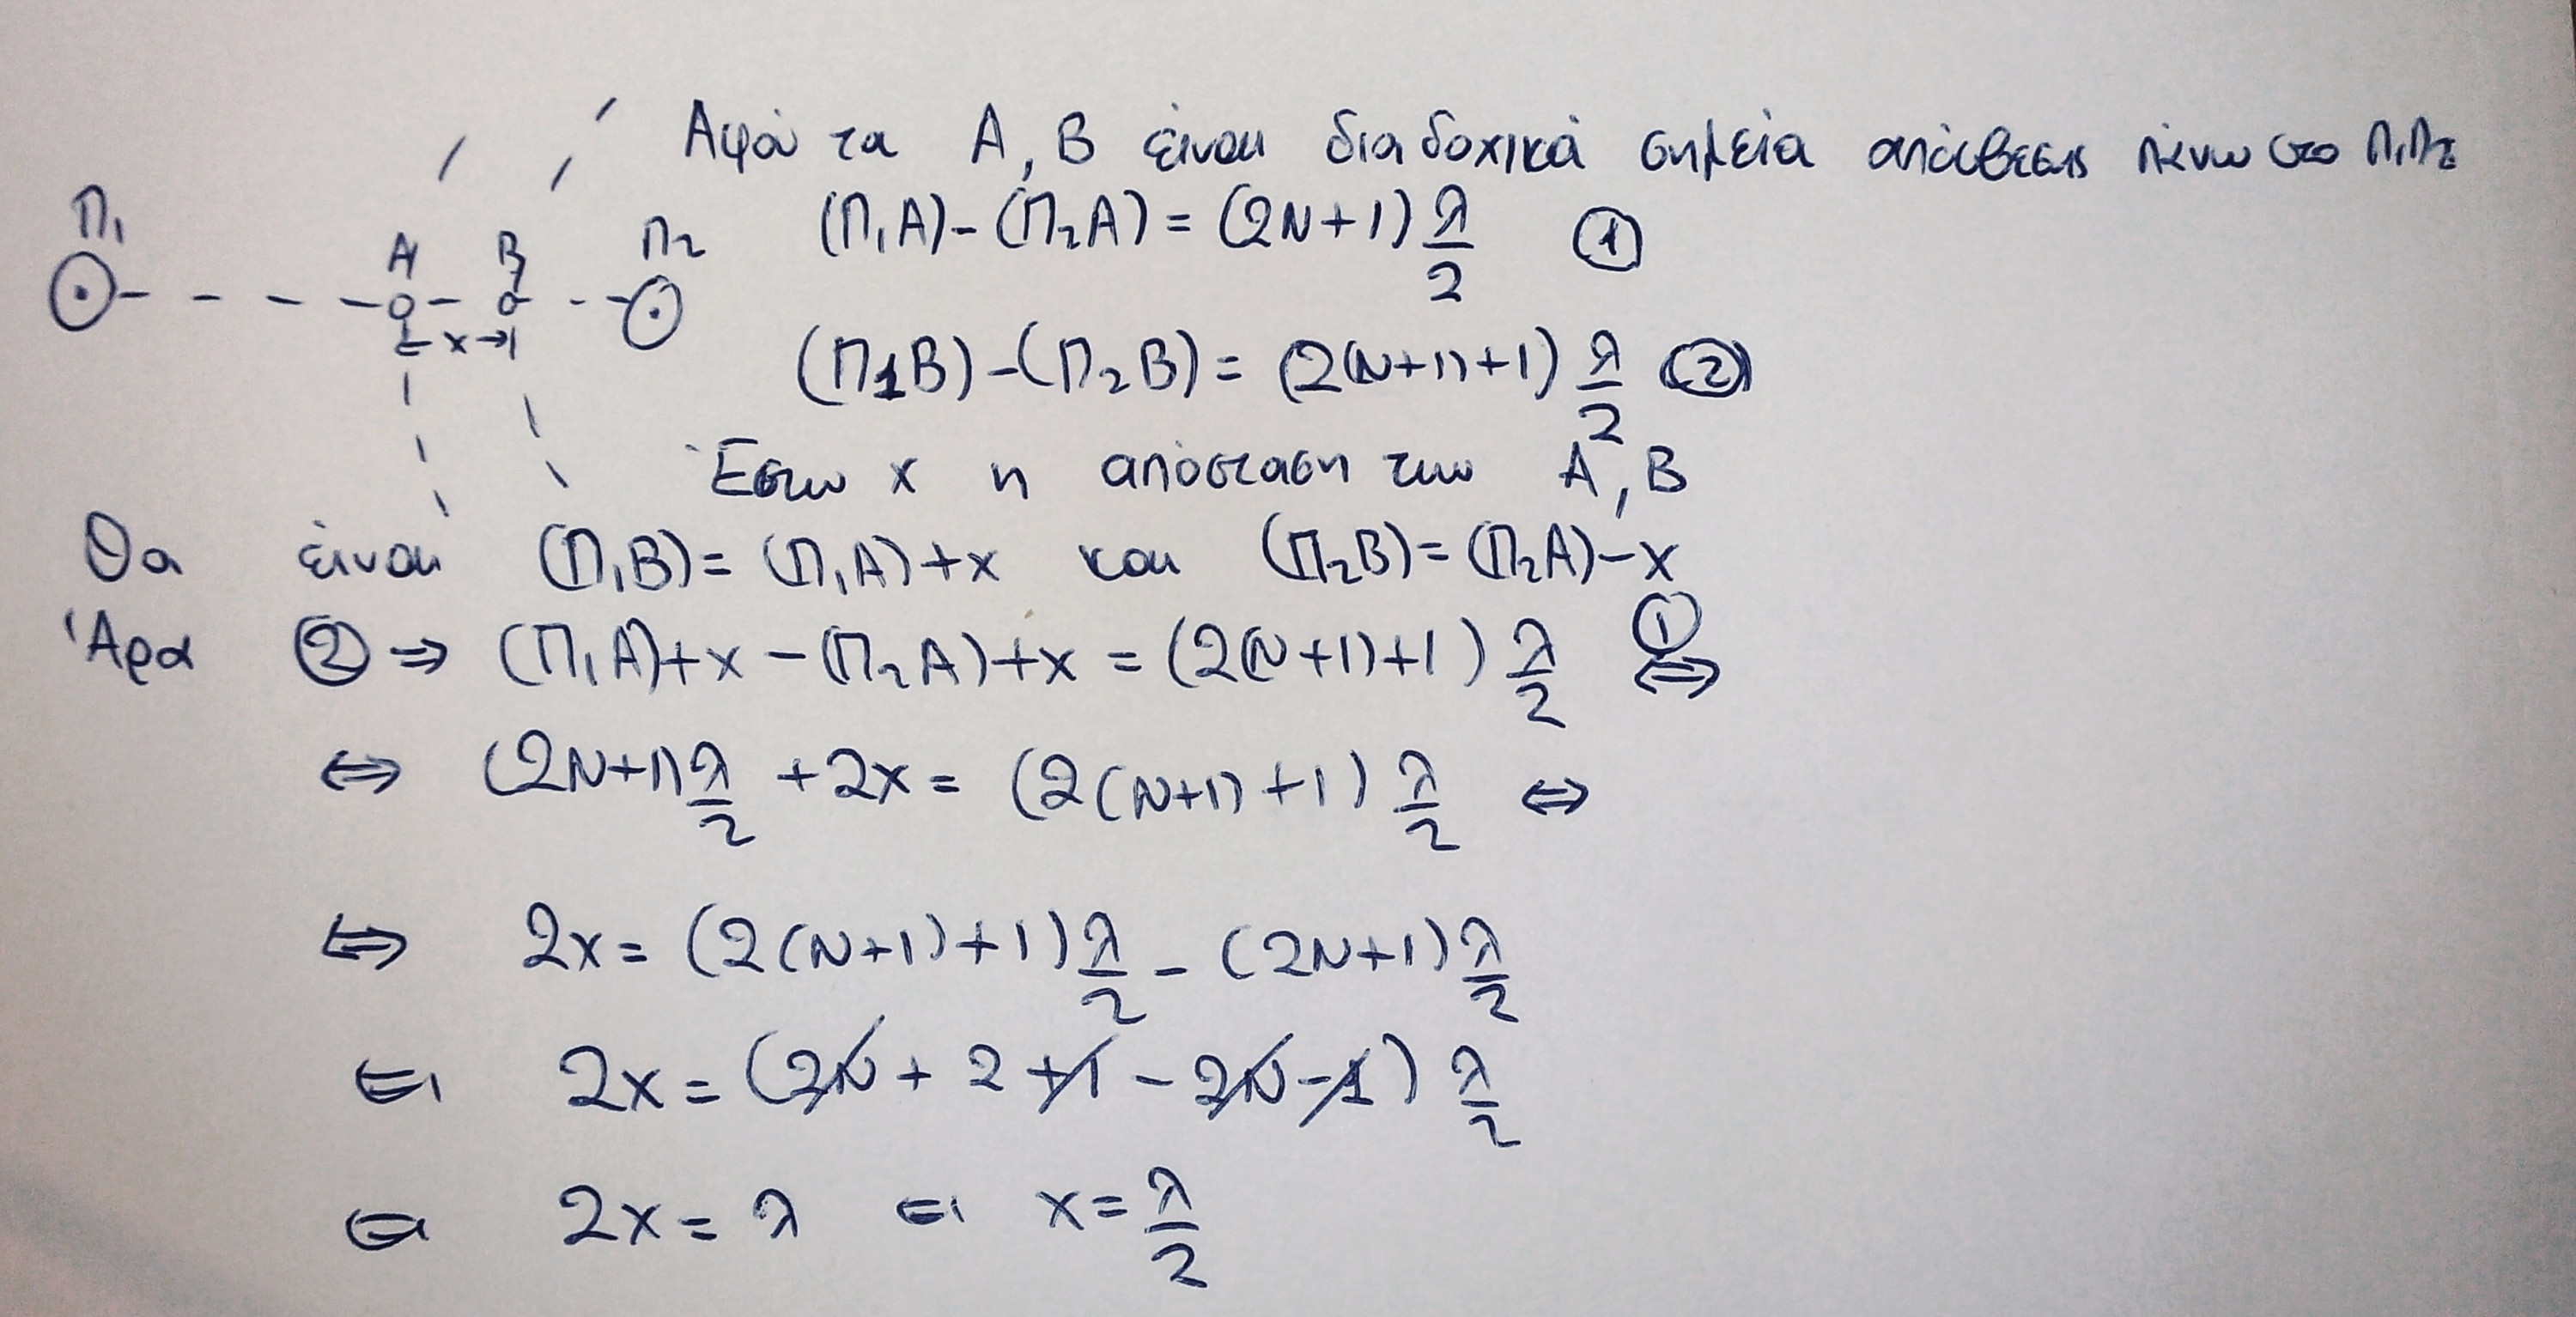 Αφού τα Α, Β είναι διαδοχικά σημεία απόσβεσης πάνω στο Π₁Π₂
Π₁ Α Β Π₂
x
(Π₁Α)-(Π₂Α) = (2Ν+1) λ/2 ①
(Π1Β)-(Π₂Β) = (2(Ν+1)+1) λ/2 ②
Έστω x η απόσταση των Α, Β
Θα είναι (Π₁Β)=(Π₁Α)+x και (Π₂Β)=(Π₂Α)-x
Άρα ② ⇒ (Π₁Α)+x-(Π₂Α)+x = (2(Ν+1)+1) λ/2 ① ⇔
⇔ (2Ν+1) λ/2 +2x = (2(Ν+1)+1) λ/2 ⇔
⇔ 2x = (2(Ν+1)+1) λ/2 - (2Ν+1) λ/2
⇔ 2x = (2Ν + 2 +1 - 2Ν -1) λ/2
⇔ 2x = λ ⇔ x = λ/2